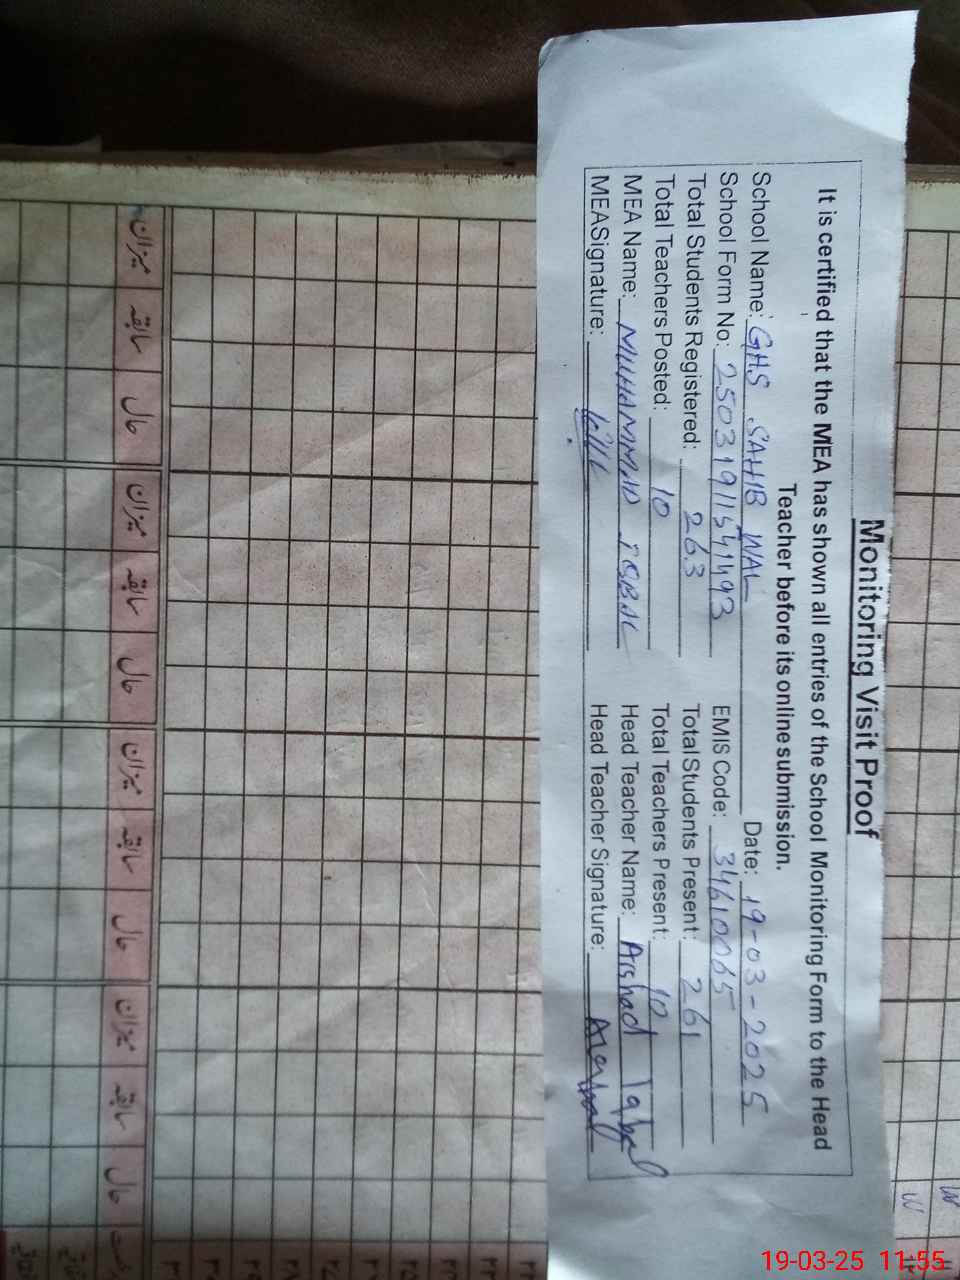 Monitoring Visit Proof
It is certified that the MEA has shown all entries of the School Monitoring Form to the Head
Teacher before its online submission.
School Name: GHS SAHIB WAL Date: 19-03-2025
School Form No: EMIS Code: 34610065
Total Students Registered: 263 Total Students Present: 261
Total Teachers Posted: 10 Total Teachers Present: 10
MEA Name: MUHAMMAD IQBAL Head Teacher Name: Arshad Iqbal
MEASignature: Head Teacher Signature:
میزان سابقہ حال میزان سابقہ حال میزان سابقہ حال میزان سابقہ حال
19-03-25 11:55